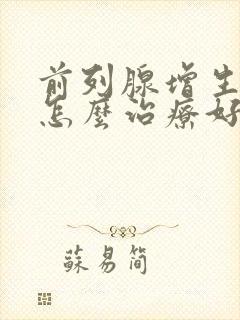 前列腺增生
怎麼治療好
蘇易簡